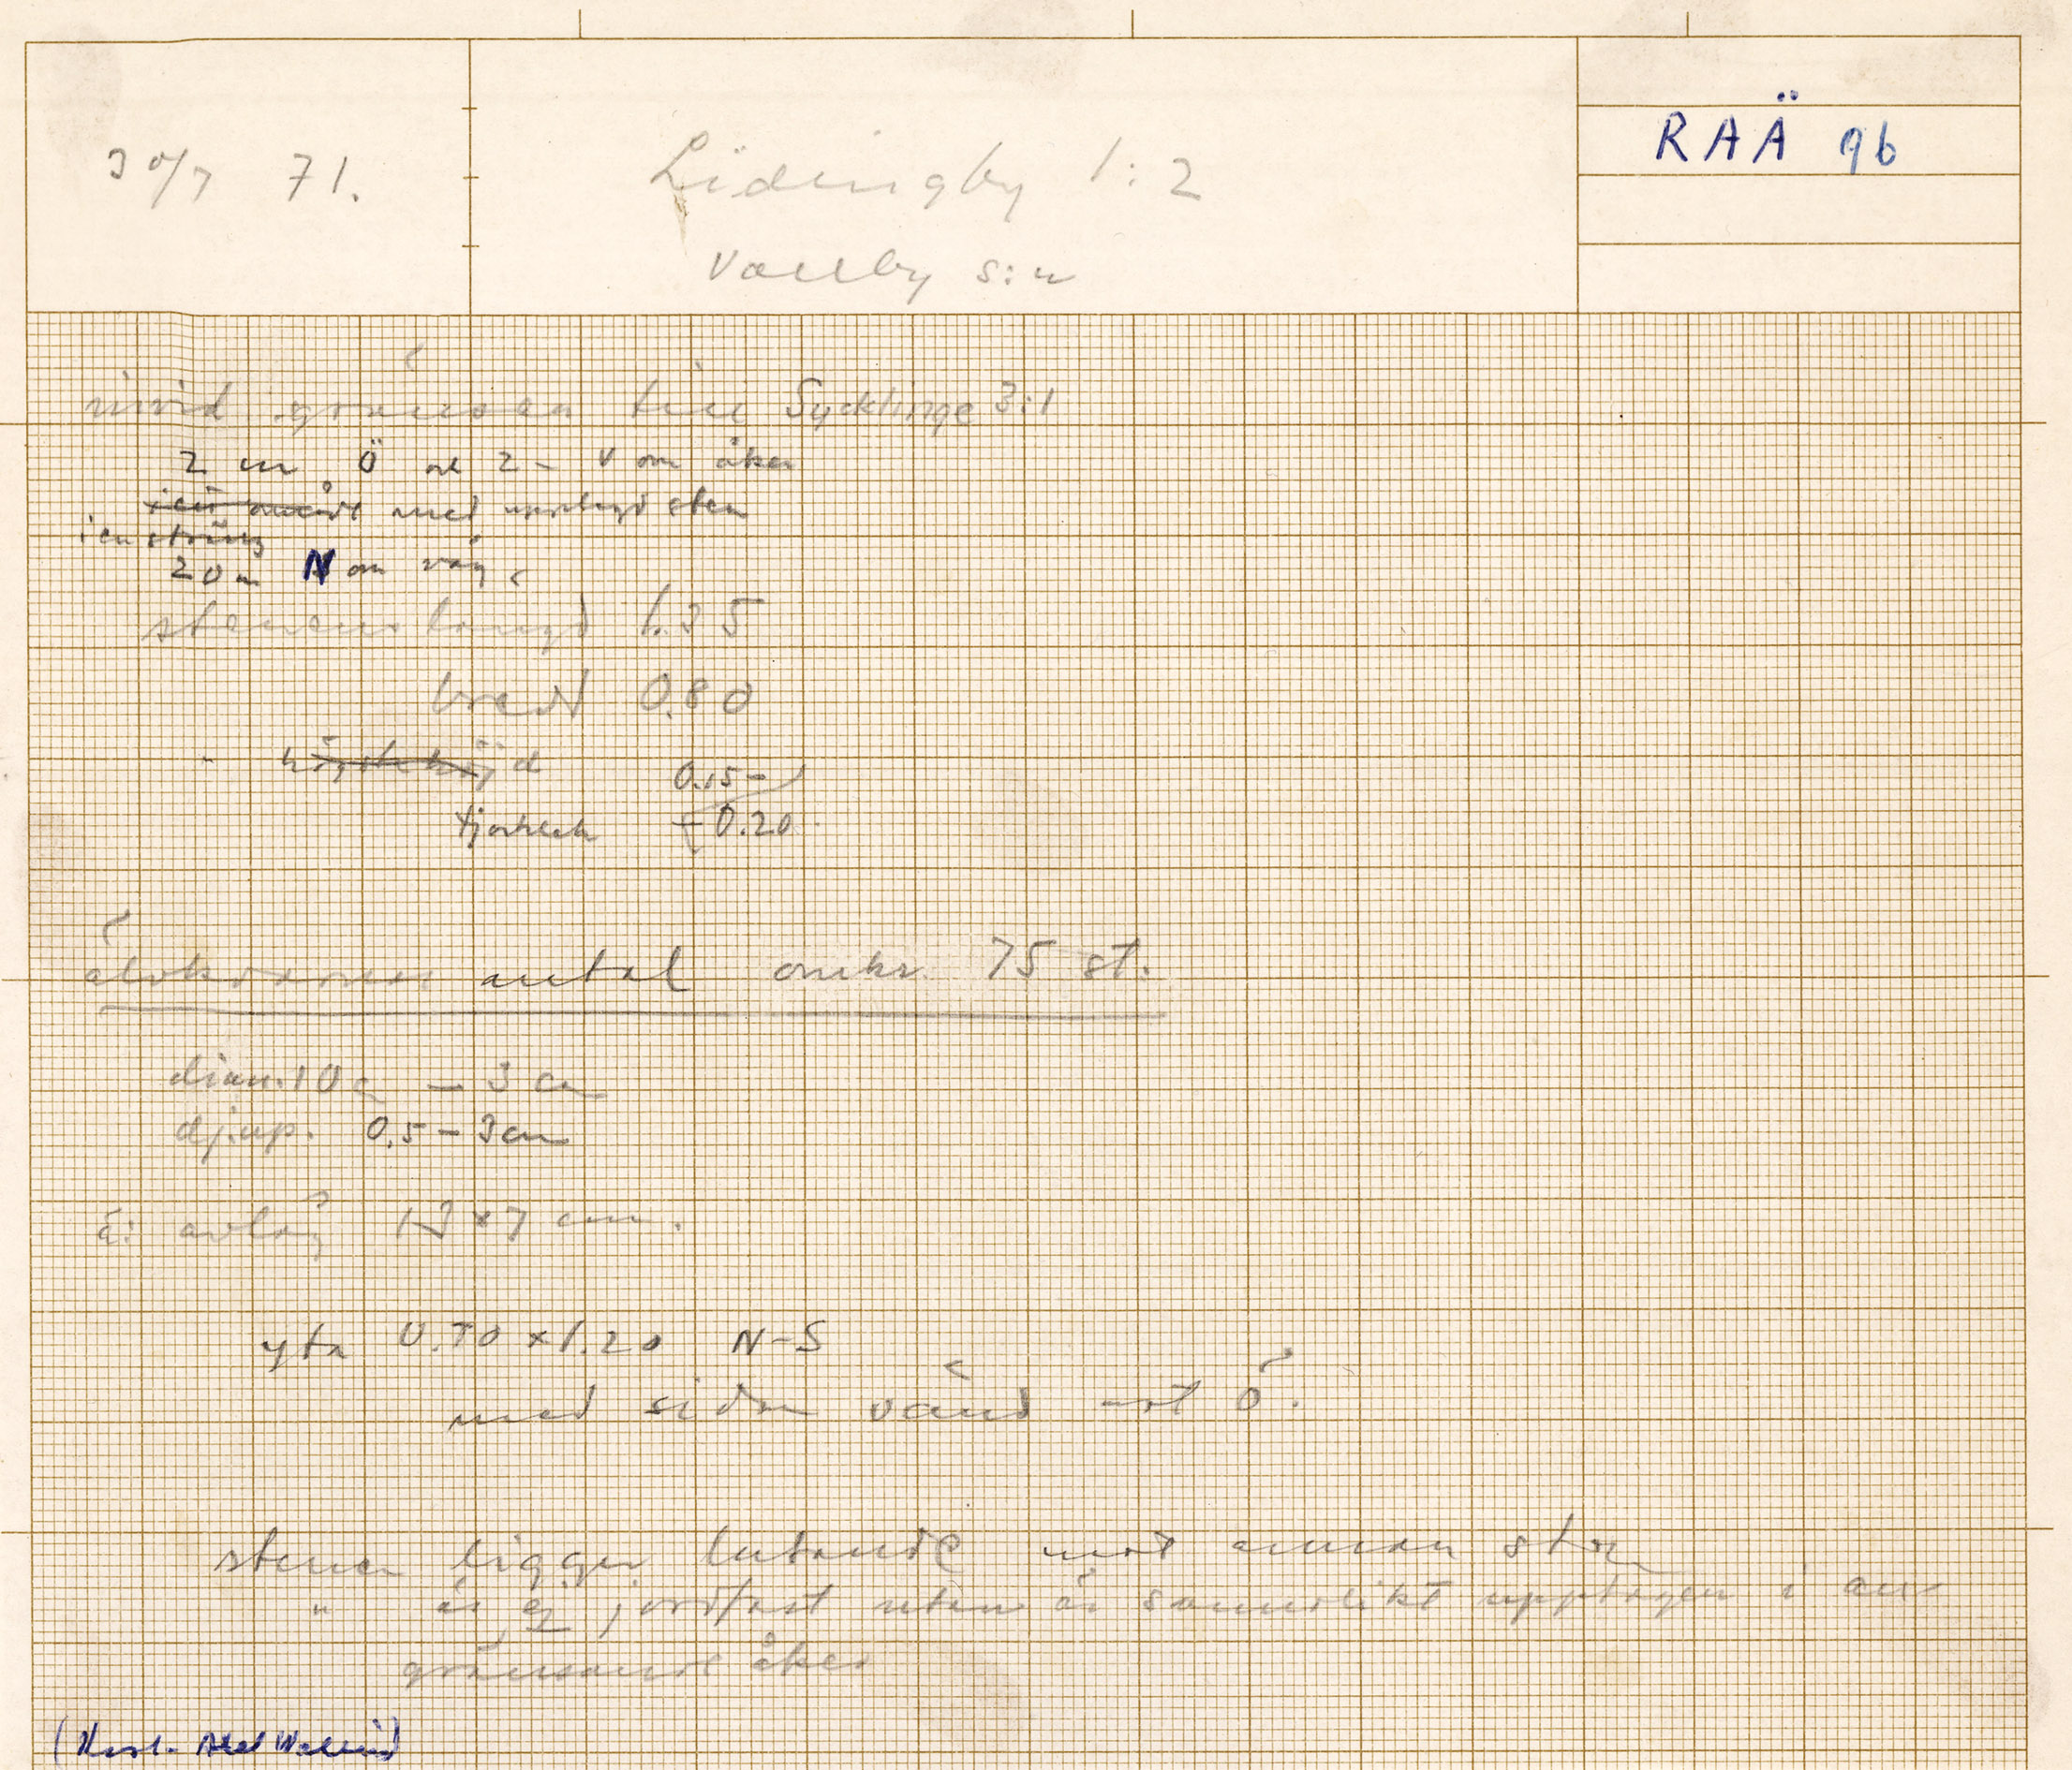 30/7 71.
Lidingby 1:2
Vallby s:n
RAÄ 96
invid gränsen till Sycklinge 3:1
2 m Ö och 2 m V om åker
med upplagd sten
i en sträng
20 m N om väg
stenens längd 1.35
bredd 0.80
högsta höjd 0.15-
tjocklek 0.20
älvkvarnar antal omkr. 75 st.
diam. 10 c — 3 cm
djup. 0,5 – 3 cm
avlång 13 x 7 cm.
yta 0.70 x 1.20 N-S
med sidan vänd mot Ö.
stenen ligger lutande mot annan sten
" är ej jordfast utan är sannolikt upptagen i an-
gränsande åker
(Axel